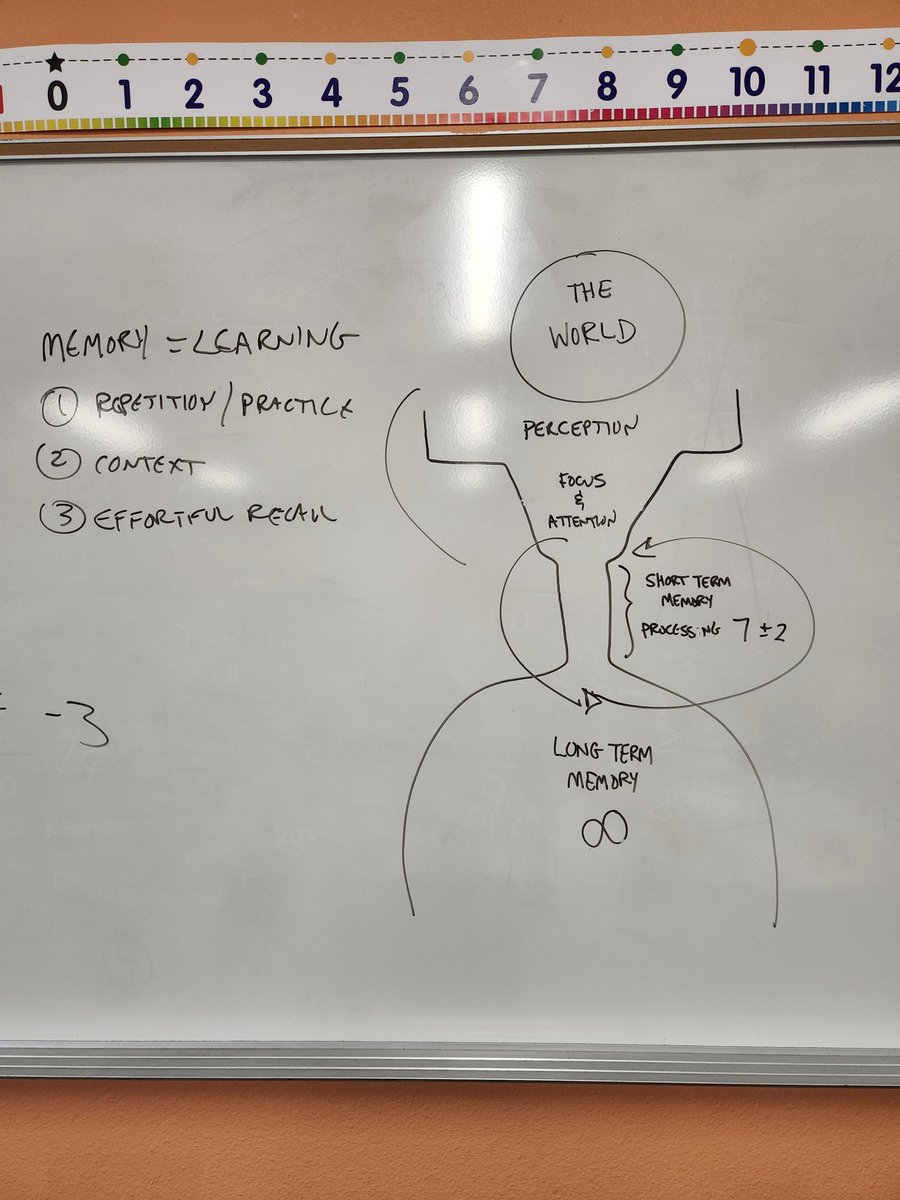 0 1 2 3 4 5 6 7 8 9 10 11 12
MEMORY = LEARNING
① REPETITION / PRACTICE
② CONTEXT
③ EFFORTFUL RECALL
-3
THE
WORLD
PERCEPTION
FOCUS
&
ATTENTION
SHORT TERM
MEMORY
PROCESSING 7 ± 2
LONG TERM
MEMORY
∞